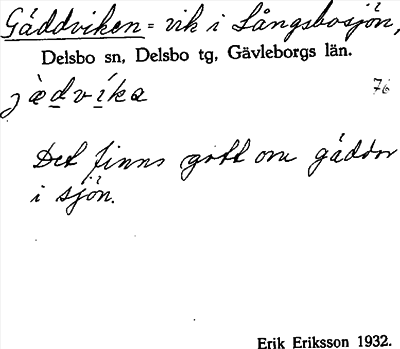 Gäddviken = vik i Långsbosjön,
Delsbo sn, Delsbo tg, Gävleborgs län.
jàdvíka 76
Det finns gott om gäddor
i sjön.
Erik Eriksson 1932.